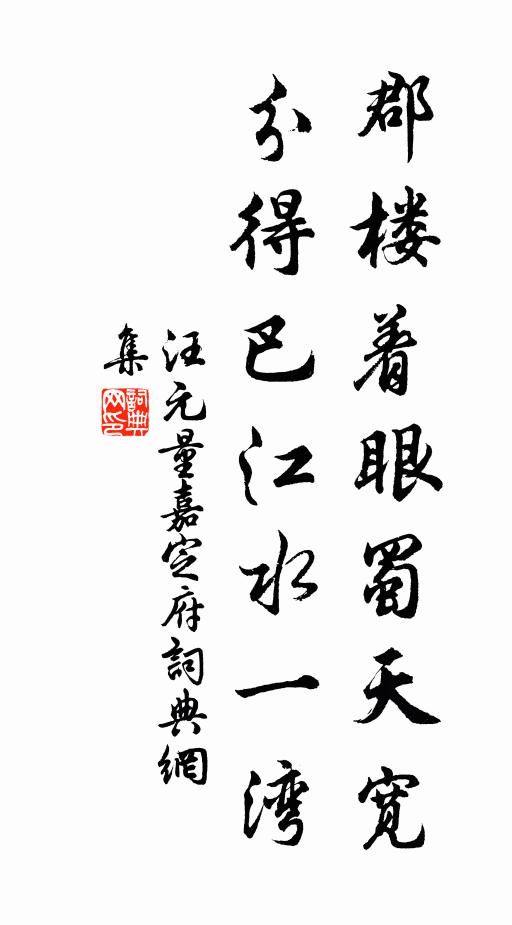 郡楼着眼蜀天宽
分得巴江水一湾
汪元量嘉定府詞典網
集
詞典
网印